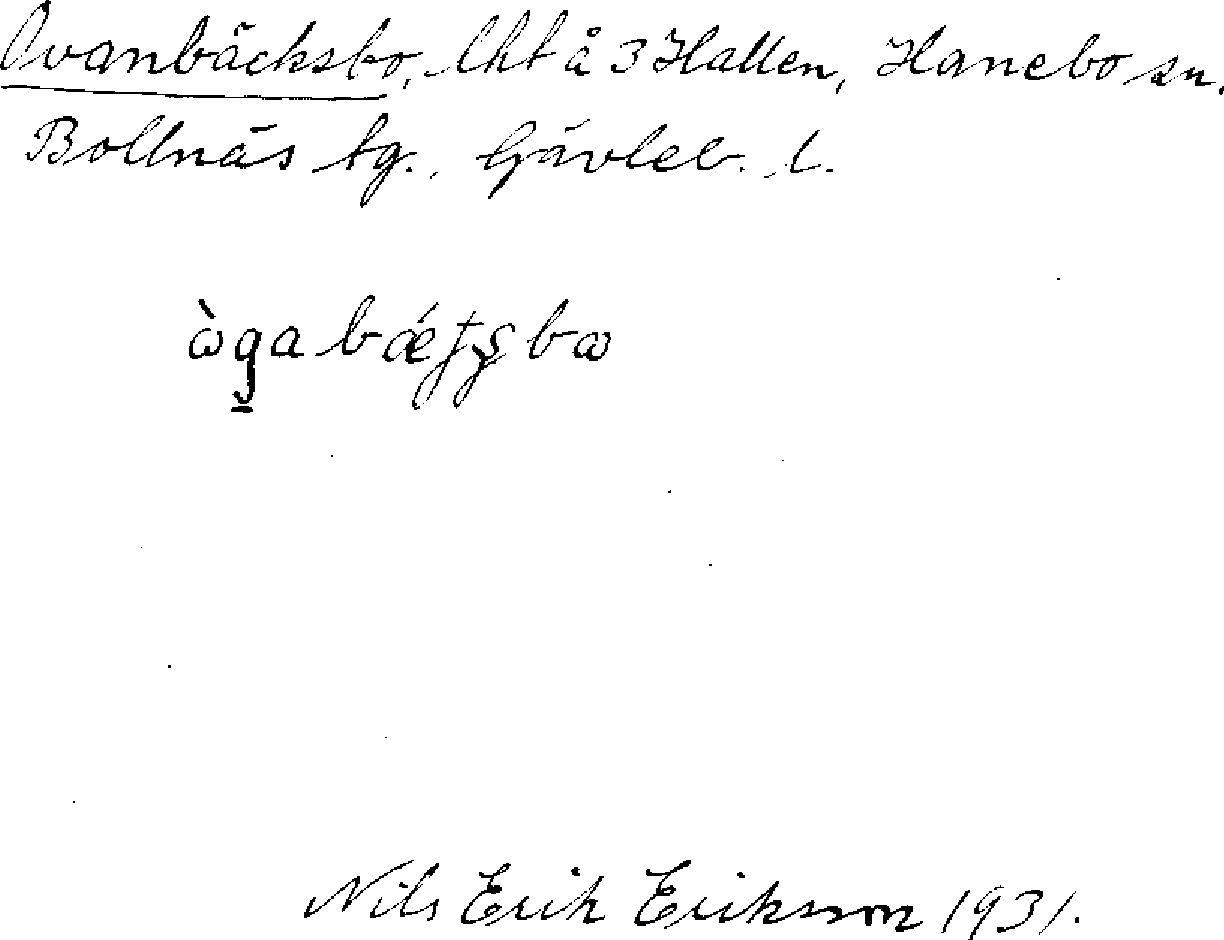 Ovanbäcksbo, lht å 3 Hallen, Hanebo sn.
Bollnäs tg., Gävleb. l.
Nils Erik Eriksson 1931.